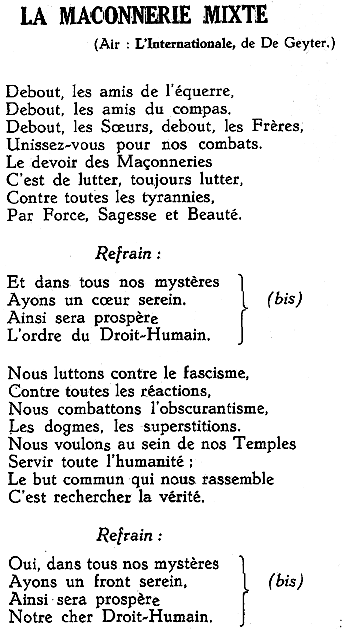 LA MACONNERIE MIXTE
(Air : L'Internationale, de De Geyter.)
Debout, les amis de l'équerre,
Debout, les amis du compas.
Debout, les Sœurs, debout, les Frères,
Unissez-vous pour nos combats.
Le devoir des Maçonneries
C'est de lutter, toujours lutter,
Contre toutes les tyrannies,
Par Force, Sagesse et Beauté.
Refrain :
Et dans tous nos mystères
Ayons un cœur serein.
Ainsi sera prospère
L'ordre du Droit-Humain.
(bis)
Nous luttons contre le fascisme,
Contre toutes les réactions,
Nous combattons l'obscurantisme,
Les dogmes, les superstitions.
Nous voulons au sein de nos Temples
Servir toute l'humanité ;
Le but commun qui nous rassemble
C'est rechercher la vérité.
Refrain :
Oui, dans tous nos mystères
Ayons un front serein,
Ainsi sera prospère
Notre cher Droit-Humain.
(bis)